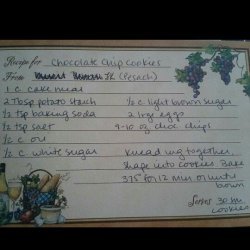 Recipe for Chocolate Chip Cookies
From (Pesach)
1 c. cake meal
2 Tbsp potato starch
1/2 c light brown sugar
1/2 tsp baking soda
2 large eggs
1/2 tsp salt
9-10 oz choc chips
1/2 c oil
1/2 c. white sugar
Knead ing together,
shape into cookies. Bake
375° for 12 min or until
brown
Serves 30 lrg
cookies